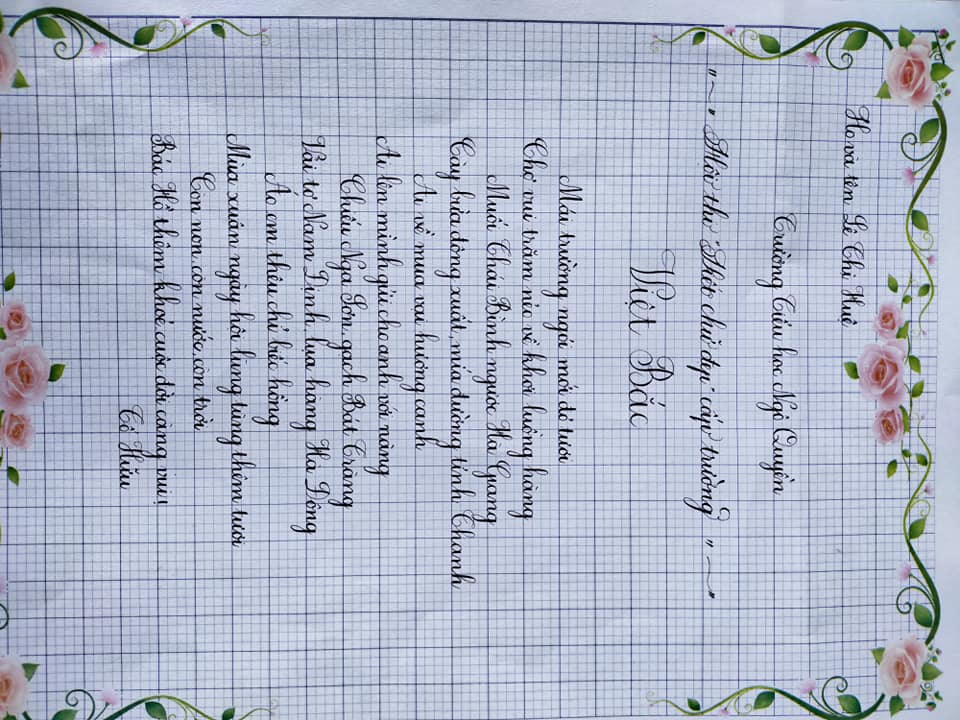 Họ và tên Lê Thị Huệ
Trường Tiểu học Ngô Quyền
"~" Hội thi "Viết chữ đẹp" cấp trường "~"
Việt Bắc
Mái trường ngói mới đỏ tươi
Chợ vui trăm nẻo về khơi luồng hàng
Muối Thái Bình ngược Hà Giang
Cày bừa đông xuất, mía đường tỉnh Thanh
Ai về mua vại hương canh
Ai lên mình gửi cho anh với nàng
Chiếu Nga Sơn, gạch Bát Tràng
Vải tơ Nam Định, lụa hàng Hà Đông
Áo em thêu chỉ biếc hồng
Mùa xuân ngày hội lùng tùng thêm tươi
Còn non, còn nước, còn trời
Bác Hồ thêm khoẻ, cuộc đời càng vui!
Tố Hữu